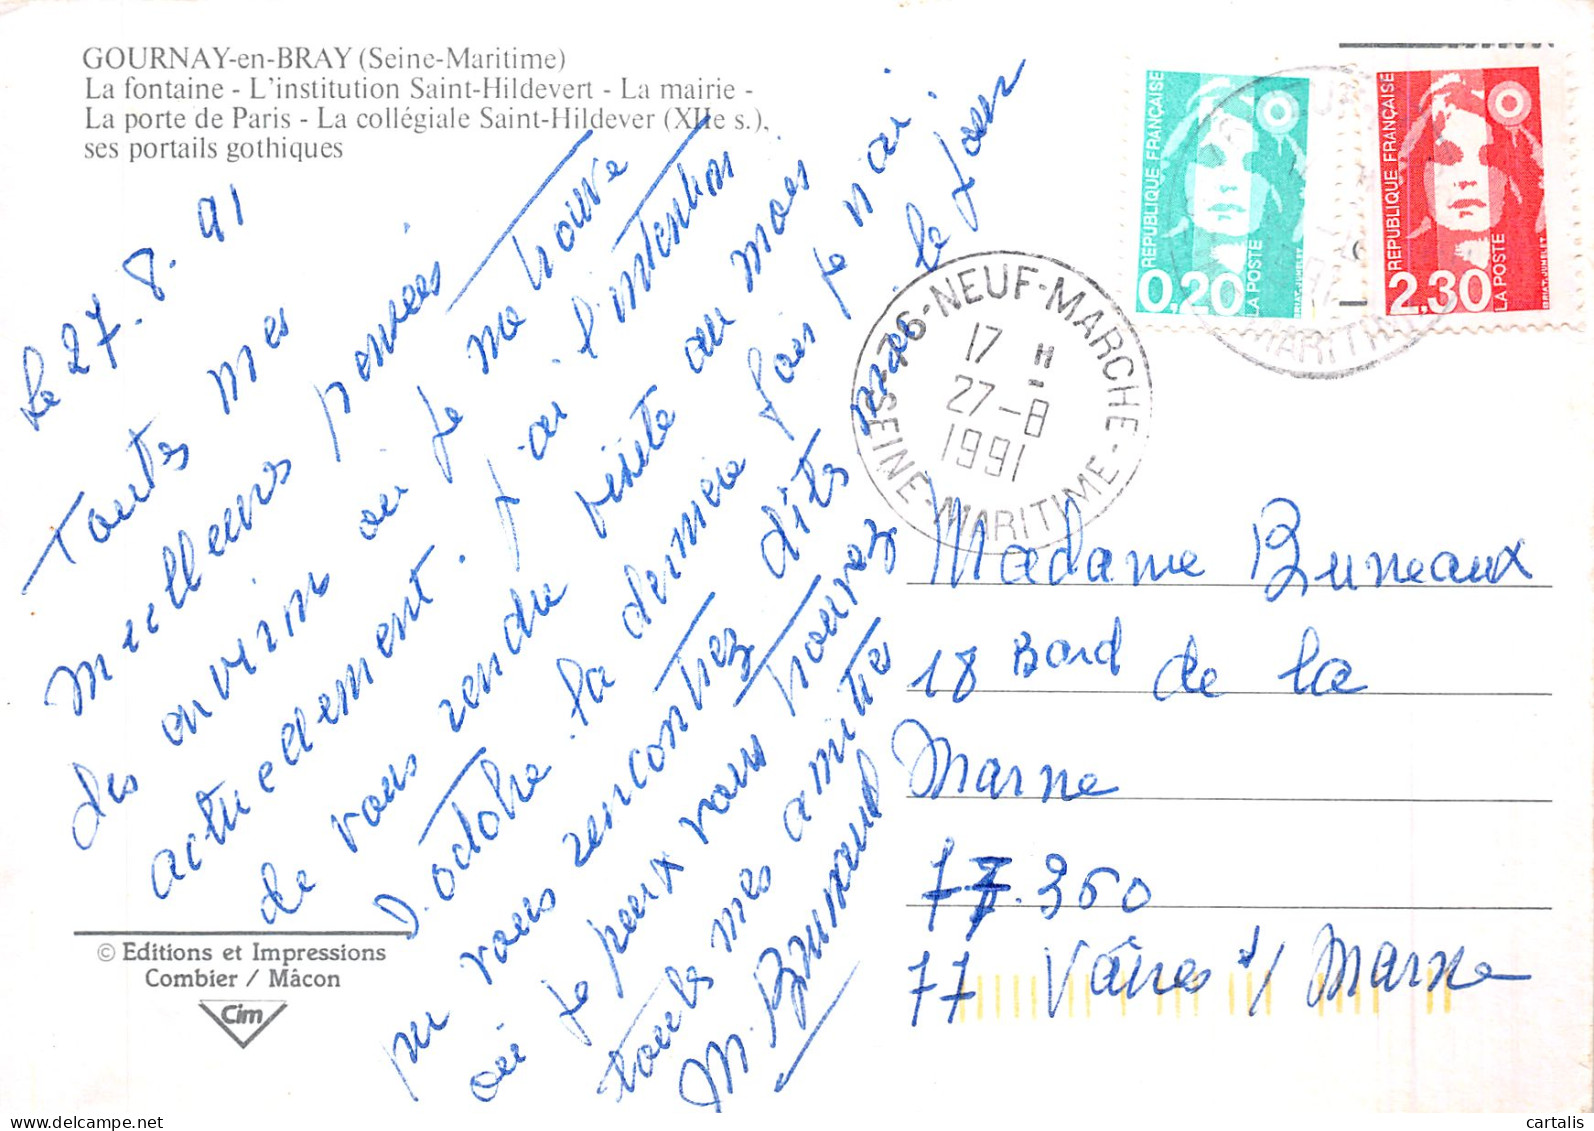 GOURNAY-en-BRAY (Seine-Maritime)
La fontaine - L'institution Saint-Hildevert - La mairie -
La porte de Paris - La collégiale Saint-Hildever (XIIe s.),
ses portails gothiques
Le 27. 8. 91
Toutes mes
meilleures pensées
des anvirin ou je me trouve
actuedement. j'ai l'intention
de vous rendre visite au mois
D. octobre. la dernière fois je nai
pu vous rencontrez dits moi le jour
ou je peux vous trouvez
toutes mes amitié
M. Bruneaud
© Editions et Impressions
Combier / Mâcon
Cim
REPUBLIQUE FRANÇAISE
0,20
LA POSTE
BRIAT-JUMELET
REPUBLIQUE FRANÇAISE
2,30
LA POSTE
BRIAT-JUMELET
76-NEUF-MARCHE
17 H
27-8
1991
SEINE-MARITIME
MARITIME
Madame Buneaux
18 Bord de la
Marne
77.360
77 Vaires s/ Marne
cartalis
delcampe.net